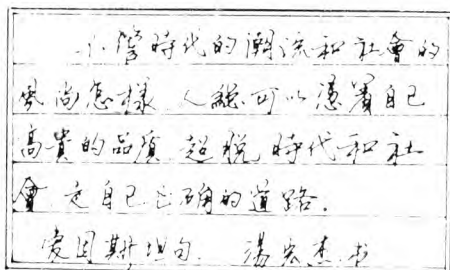 不管時代的潮流和社會的
風尚怎樣 人總可以憑著自己
高貴的品質 超脫時代和社
會 走自己正确的道路.
愛因斯坦句. 湯宏杰.书